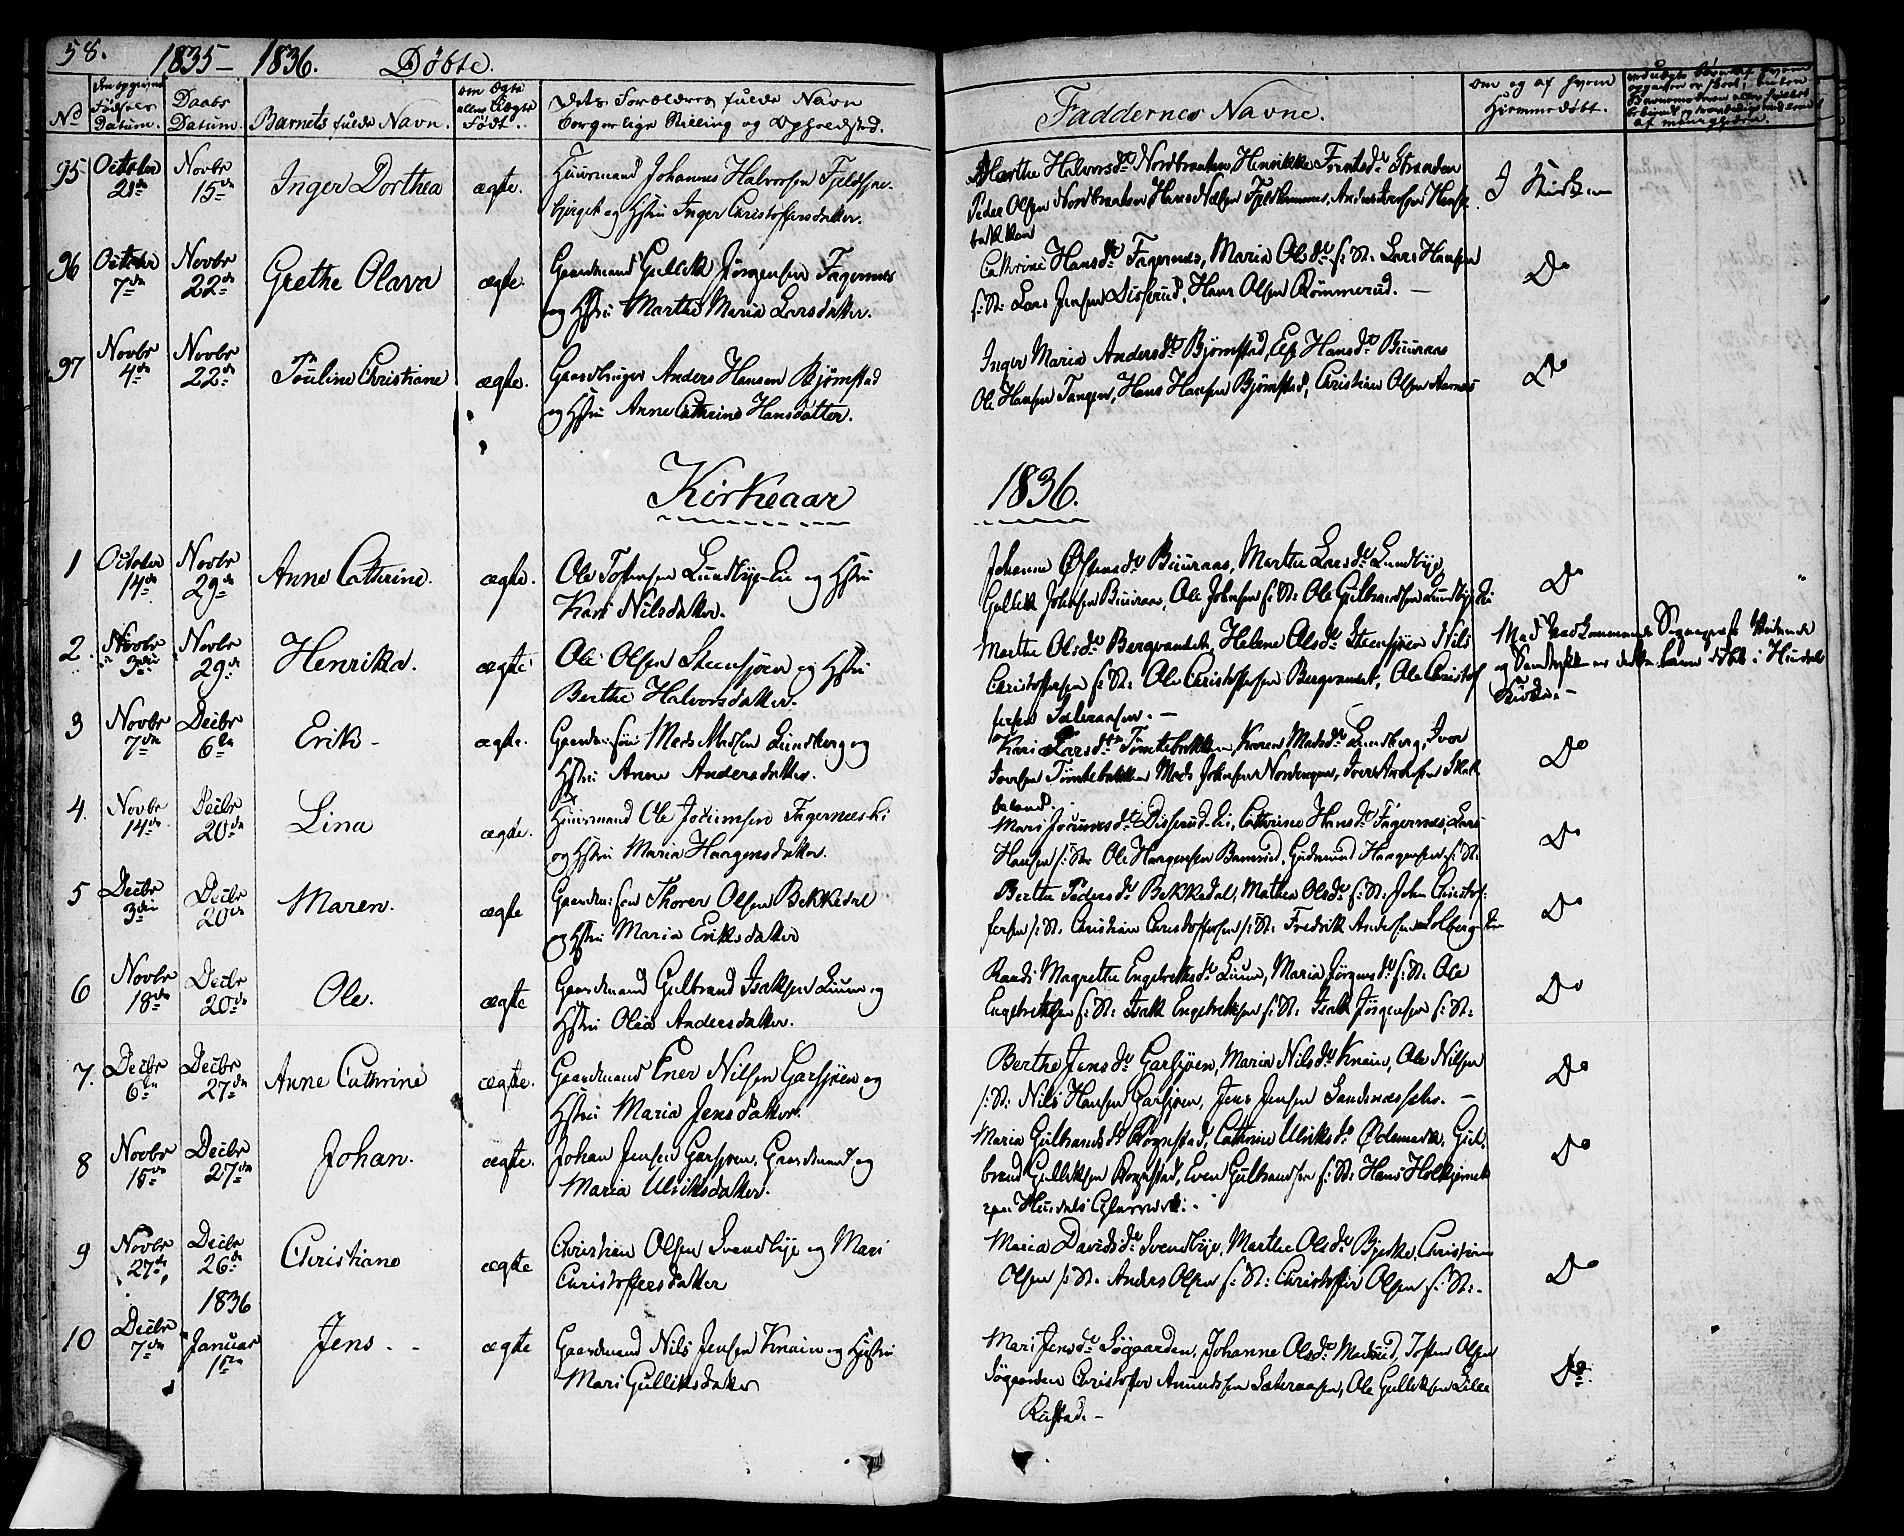 58. 1835- 1836. Döbte.
No
Födsels Datum.
Daabs Datum.
Barnets fulde Navn.
om Ægte eller Uægte Födt.
Dets Forældres fulde Navn
borgerlige Stilling og Opholdsted.
Faddernes Navne.
om og af hvem
Hjemmedöbt.
95 October 21de Novbr 15de Inger Dorthea ægte. Huusmand Johannes Halvorsen
og Hstru Inger Christophersdatter.
Marthe Halvorsdr Nordbraaten, Henrikke Stranden
Peder Olsen Nordbraaten, Hans
bakken
I Kirken
96 October 7de Novbr 22de Grethe Olava ægte. Gaardmand Gullik Jörgensen Fagernes
og Hstru Marthe Maria Larsdatter.
Cathrine Hansdr Fagernes, Maria Olsdr s: St: Lars Hansen
s: St: Lars Jensen Disserud, Hans Olsen Römmerud. —
Do
97 Novbr 4de Novbr 22de Pauline Christiane ægte. Gaardbruger Anders Hansen Bjørnstad
og Hstru Anne Cathrine Hansdatter.
Inger Maria Andersdr Bjørnstad, Else Hansdr Buuraas
Ole Hansen Tangen, Hans Hansen Bjørnstad, Christian Olsen Aarnæs
Do
Kirkeaar 1836.
1 October 14de Novbr 29de Anne Cathrine. ægte. Ole Tostensen Lundbye-Eie og Hstru
Kari Nilsdatter.
Johanne Buuraas, Marthe Larsdr Lundbye,
Gullik Johnsen Buuraas, Ole Johnsen s: St: Ole Gulbrandsen Lundbye Eie
Do
2. Novbr 3die Novbr 29de Henrika. ægte Ole Olsen Steensjøen og Hstru
Berthe Halvorsdatter.
Marthe Olsdr Bergvandet, Helene Olsdr Steensjøen Nils
Christophersen s: St: Ole Christophersen Bergvandet, Ole Christof
fersen Sæteraasen. —
Med Vedkommende Sognepræsts Vidende
og Samtykke er dette barn döbt i Hurdals
Kirke. —
3 Novbr 7de Decbr 6te Erik - ægte. Mads Madsen Lundberg og
Hstru Anne Andersdatter.
Kari Larsdr Tömtebakken, Karen Madsdr Lundberg, Iver
Iversen Tömtebakken Mads Johnsen Nordengen, Iver
4. Novbr 14de Decbr 20de Lina ægte. Huusmand Ole Jocumsen Fagernæs Ei
og Hstru Maria Haagensdatter.
Mari Jocumsdr Disserud Ei, Cathrine Hansdr Fagernæs, Lars
Hansen s: St: Ole Haagensen Gudmund Haagensen s: St:
Do
5 Decbr 3die Decbr 20de Maren. ægte Thorer Olsen Bekkedal
og Hstru Maria Eriksdatter
Berthe Pedersdr Bekkedal, Mathea Olsdr s: St: John Christof
fersen s: St: Christian Christophersen s: St: Fredrik Andersen
Do
6 Novbr 18de Decbr 20de Ole. ægte Gaardmand Gulbrand Isaksen Liuun og
Hstru Olea Andersdatter.
Randi Magrethe Engebretsdr Liuun, Maria Jörgensdr s: St: Ole
Engebretsen s: St: Isak Engebretsen s: St: Isak Jörgensen s: St:
Do
7. Decbr 6te Decbr 27de Anne Cathrine ægte. Gaardmand Ener Nilsen Garsjøen og
Hstru Maria Jensdatter.
Berthe Jensdr Garsjøen, Maria Nilsdr Knain, Ole Nilsen
s: St: Nils Hansen Garsjøen, Jens Jensen —
Do
8 Novbr 15de Decbr 27de Johan. ægte. Johan Jensen Garsjøen, Gaardmand og
Maria Ulriksdatter.
Maria Gulbrandsdr Rognstad, Cathrine Ulriksdr Ødemark, Gul
brand Gulliksen Rognstad, Even Gulbrandsen s: St: Hans
Hurdals Glasværk. -
Do
9 Novbr 27de Decbr 26de Christiane ægte Christian Olsen Svendbye og Mari
Christoffersdatter
Maria Davidsdr Svendbye, Marthe Olsdr Bjerke, Christian
Olsen s: St: Anders Olsen s: St: Christoffer Olsen s: St:
Do
1836
10 Decbr 7de Januar 1ste Jens - - ægte Gaardmand Nils Jensen Knain og Hstru
Mari Gulliksdatter
Mari Jensdr Søgaarden, Johanne Olsdr Tosten Olsen
Søgaarden Christoffer Amundsen Sæteraasen, Ole Gulliksen Lille
Rustad. -
Do